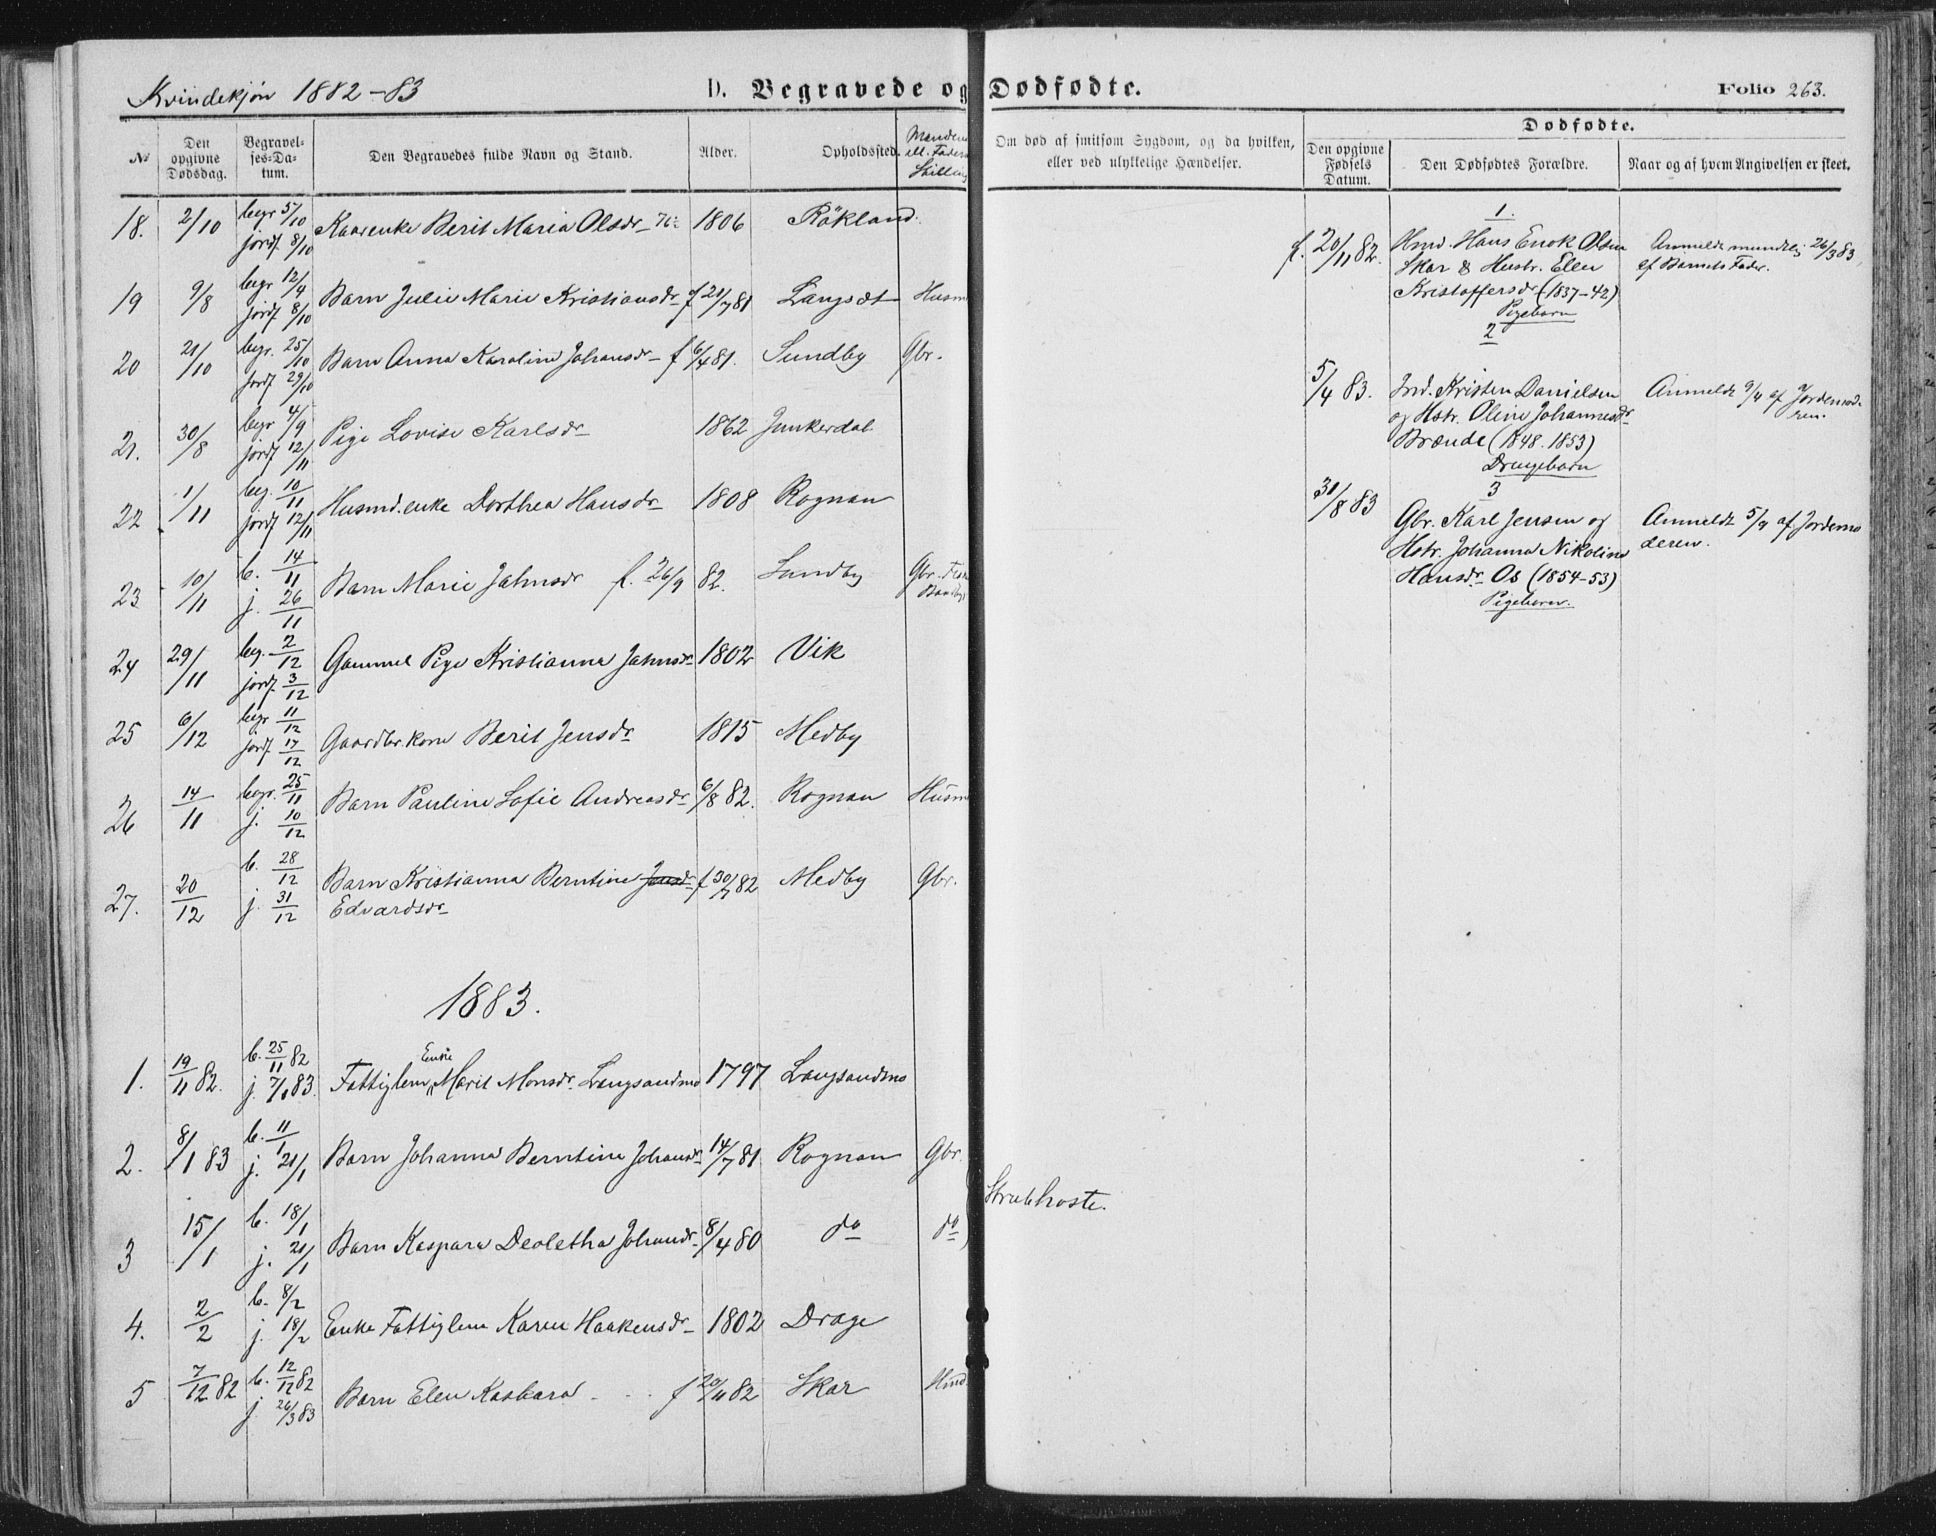 Kvindekjøn 1882-83
D. Begravede og Dødfødte.
Folio 263.
No
Den opgivne Dødsdag.
Begravelses-Datum.
Den Begravedes fulde Navn og Stand.
Alder.
Opholdssted.
Om død af smitsom Sygdom, og da hvilken, eller ved ulykkelige Hændelser.
Dødfødte.
Den opgivne Fødsels Datum.
Den Dødfødtes Forældre.
Naar og af hvem Angivelsen er skeet.
18. 2/10 begr 5/10 jordf. 8/10 Kaarenke Berit Maria Olsdr 1806 Røkland
19 9/8 begr 12/4 jordf 8/10 Barn Julie Marie Kristiansdr f 21/7 81 Langset Husm
20 21/10 begr. 25/10 jordf 29/10 Barn Anna Karoline Johansdr f 6/4 81. Sundby Gbr.
21. 30/8 begr 4/9 jordf 12/11 Pige Lovise Karlsdr 1862 Junkerdal
22 1/11 beg. 10/11 jordf 12/11 Husmd.enke Dorthea Hansdr 1808 Rognan
23 10/11 b. 14/11 j. 26/11 Barn Marie Jahnsdr f. 26/9 82. Sundby Gbr.
24 29/11 beg. 2/12 jordf. 3/12 Gammel Pige Kristianna Jahnsdr 1802 Vik
25 6/12 begr 11/12 jordf 17/12 Gaardbr.kone Berit Jensdr 1815 Medby
26 14/11 begr. 25/11 j. 10/12 Barn Pauline Sofie Andreasdr 6/8 82. Rognan Husm
27. 20/12 b. 28/12 j. 31/12 Barn Kristianna Berntine Jensdr f 30/7 82 Medby Gbr.
Edvardsdr
1883.
1. 19/11 82. b. 25/11 82 j. 7/1 83. Fattiglem Enke Marit Monsdr. Langsandmo 1797 Langsandmo
2. 8/1 83 b. 11/1 j. 21/1 Barn Johanna Berntine Johansdr 14/7 81 Rognan Gbr.
3 15/1 b. 18/1 j. 21/1 Barn Kaspara Deoletha Johansdr. 8/4 80 do do Strubhoste.
4. 2/2 b. 8/2 j. 18/2 Enke Fattiglem Karen Haakensdr 1802 Drage
5 7/12 82 b. 12/12 82 j. 26/3 83 Barn Elen Kasbara f 20/11 82 Skar Hmd
1.
f. 20/11 82. Hmd. Hans Enok Olsen Anmeldt mundtlig 26/3 83
Skar & Hustr. Ellen af Barnets Fader.
Kristoffersdr (1837-42)
Pigebarn
2
5/4 83. Ind. Kristen Danielsen Anmeldt 9/4 af Jordemod-
og Hstr. Oline Johannesdr ren.
Brænde (1848. 1853)
Drengebarn
3
31/8 83 Gbr. Karl Jensen og Anmeldt 5/9 af Jordemo
Hstr. Johanna Nikoline deren.
Hansdr Os (1854-53)
Pigebarn.